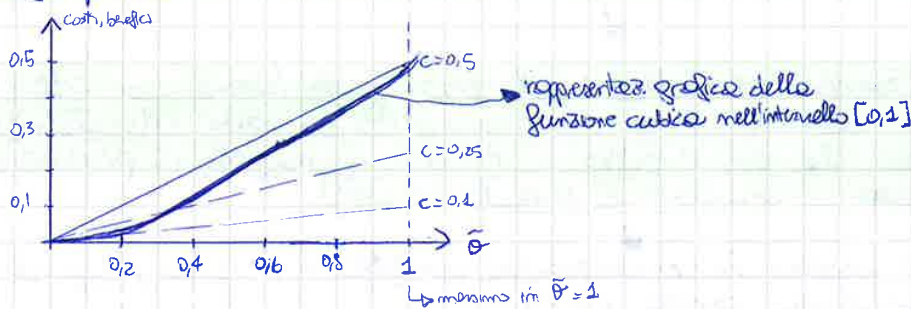 costi, benefici
0,5
0,3
0,1
c=0,5
c=0,25
c=0,1
rappresentaz. grafica della
funzione cubica nell'intervallo [0,1]
0,2 0,4 0,6 0,8 1 θ̃
↳ massimo in θ̃=1